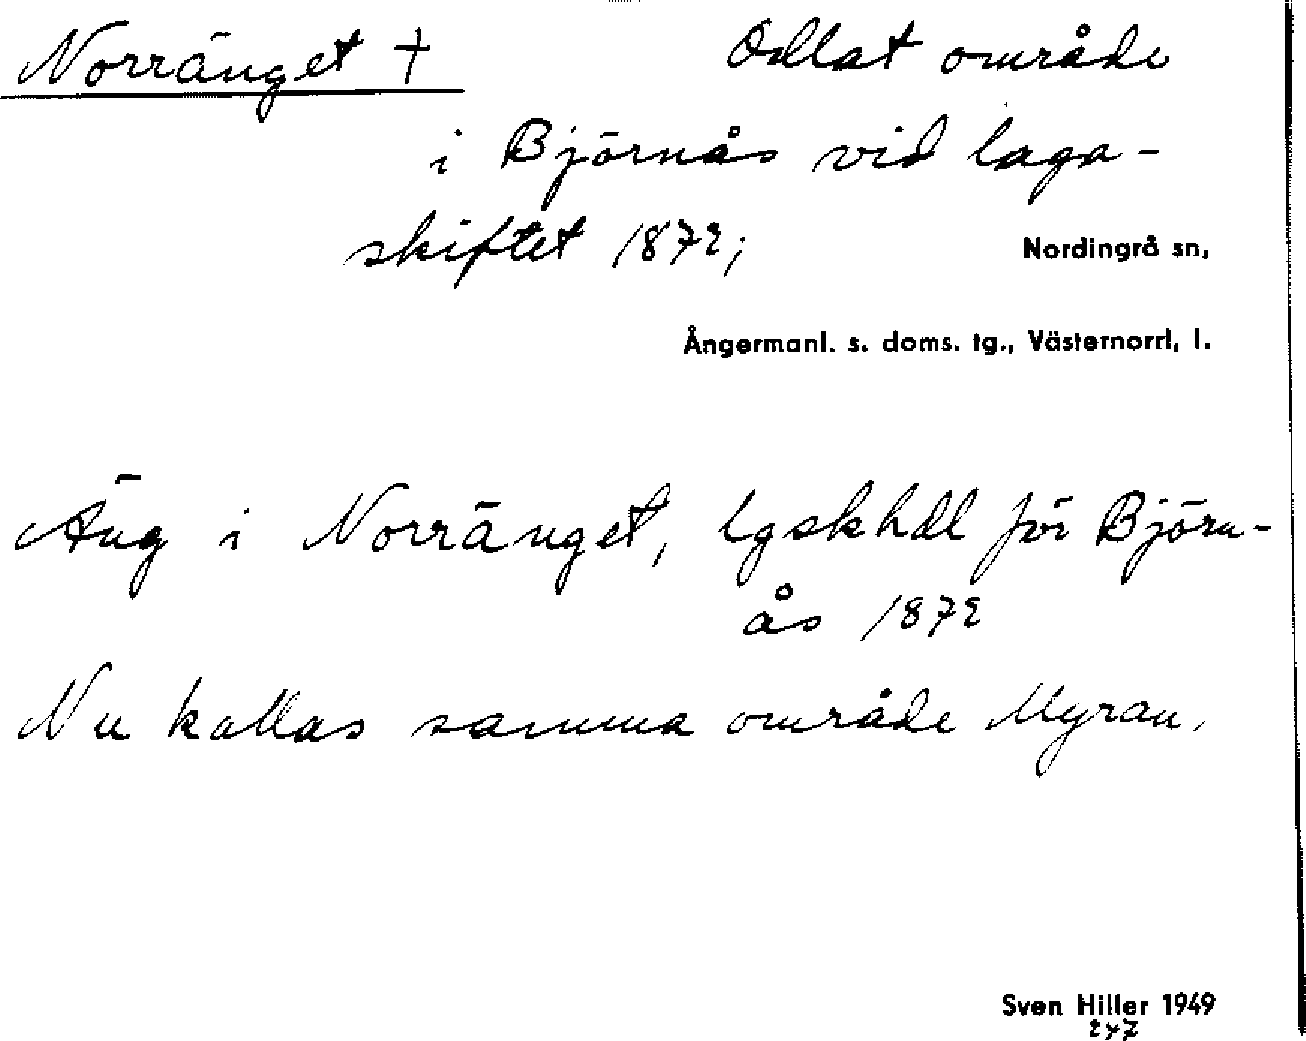 Norränget †
Odlat område
i Björnås vid laga-
skiftet 1872;
Nordingrå sn,
Ångermanl. s. doms. tg., Västernorrl, l.
Äng i Norränget, lgskhdl för Björn-
ås 1872
Nu kallas samma område Myran.
Sven Hiller 1949
247